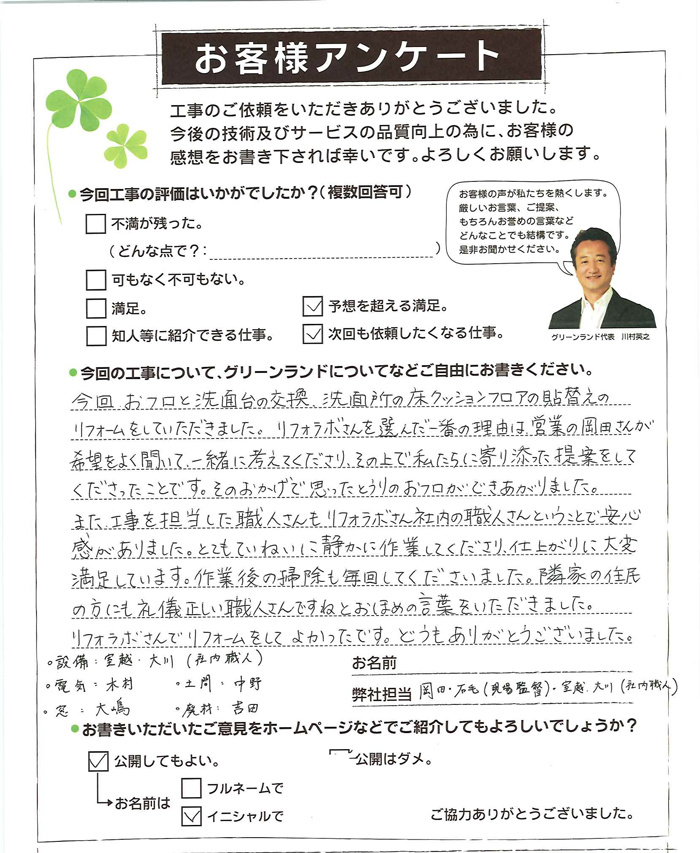 お客様アンケート
工事のご依頼をいただきありがとうございました。
今後の技術及びサービスの品質向上の為に、お客様の
感想をお書き下されば幸いです。よろしくお願いします。
●今回工事の評価はいかがでしたか?(複数回答可)
お客様の声が私たちを熱くします。
厳しいお言葉、ご提案、
もちろんお誉めの言葉など
どんなことでも結構です。
是非お聞かせください。
不満が残った。
(どんな点で?: )
可もなく不可もない。
満足。 予想を超える満足。
知人等に紹介できる仕事。 次回も依頼したくなる仕事。
グリーンランド代表 川村英之
●今回の工事について、グリーンランドについてなどご自由にお書きください。
今回 おフロと洗面台の交換、洗面所の床クッションフロアの貼替えの
リフォームをしていただきました。リフォラボさんを選んだ一番の理由は、営業の岡田さんが
希望をよく聞いて、一緒に考えてくださり、その上で私たちに寄り添った提案をして
くださったことです。そのおかげで思ったとうりのおフロができあがりました。
また、工事を担当した職人さんもリフォラボさん社内の職人さんということで安心
感がありました。とてもていねいに静かに作業してくださり、仕上がりに大変
満足しています。作業後の掃除も毎回してくださいました。隣家の住民
の方にも礼儀正しい職人さんですねとおほめの言葉をいただきました。
リフォラボさんでリフォームをして よかったです。どうもありがとうございました。
・設備:室越・大川(社内職人)
・電気:木村 ・土間:中野
・窓:大嶋 ・廃材:吉田
お名前
弊社担当 岡田・石毛(現場監督)・室越、大川(社内職人)
●お書きいただいたご意見をホームページなどでご紹介してもよろしいでしょうか?
公開してもよい。 公開はダメ。
お名前は フルネームで
イニシャルで
ご協力ありがとうございました。